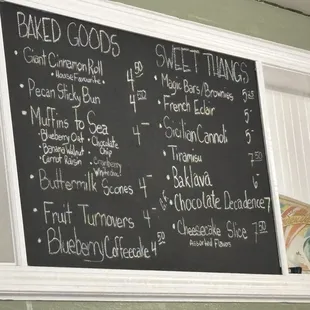 BAKED GOODS
• Giant Cinnamon Roll 4.50
House Favourite
• Pecan Sticky Bun 4.50
• Muffins to Sea 4-
• Blueberry Oat
• Chocolate Chip
• Banana Walnut
• Carrot Raisin
• Buttermilk Scones 4-
• Fruit Turnovers 4-
• Blueberry Coffeecake 4.50
SWEET THANGS
• Magic Bars/Brownies 5.50
• French Eclair 5-
• Sicilian Cannoli 5-
• Tiramisu 7.50
• Baklava 6-
• Chocolate Decadence 7
• Cheesecake Slice 7.50
Assorted Flavors